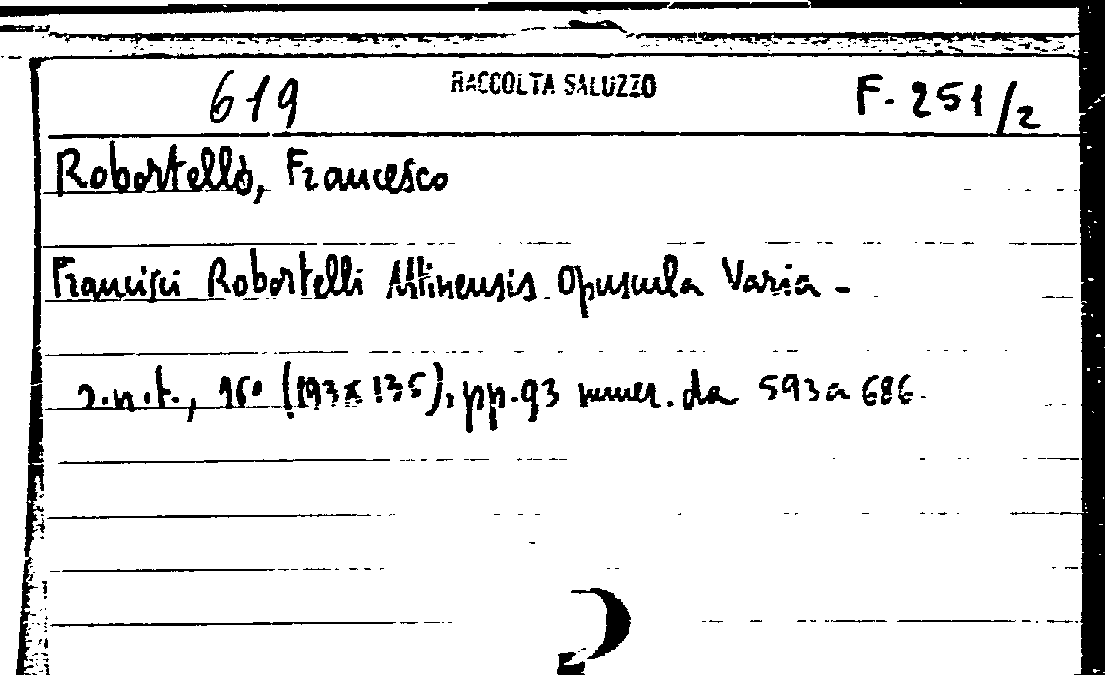 619 RACCOLTA SALUZZO F. 251/2
Robortello, Francesco
Francisci Robortelli Utinensis Opuscula Varia -
s.n.t., 16° (193x135), pp. 93 numer. da 593 a 686.